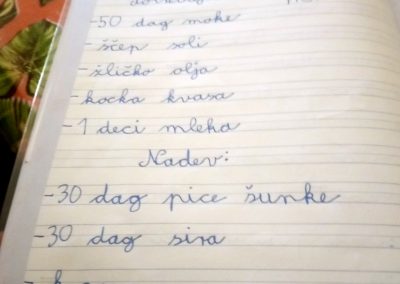 -50 dag moke
-ščep soli
-žličko olja
-kocka kvasa
-1 deci mleka
Nadev:
-30 dag pice šunke
-30 dag sira